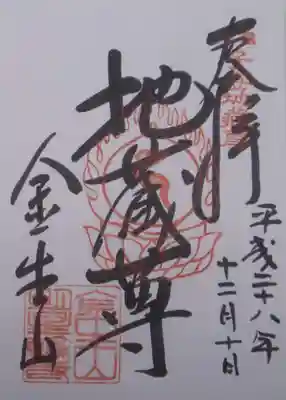 奉拝
平成二十八年
十二月十日
地蔵尊
金生山